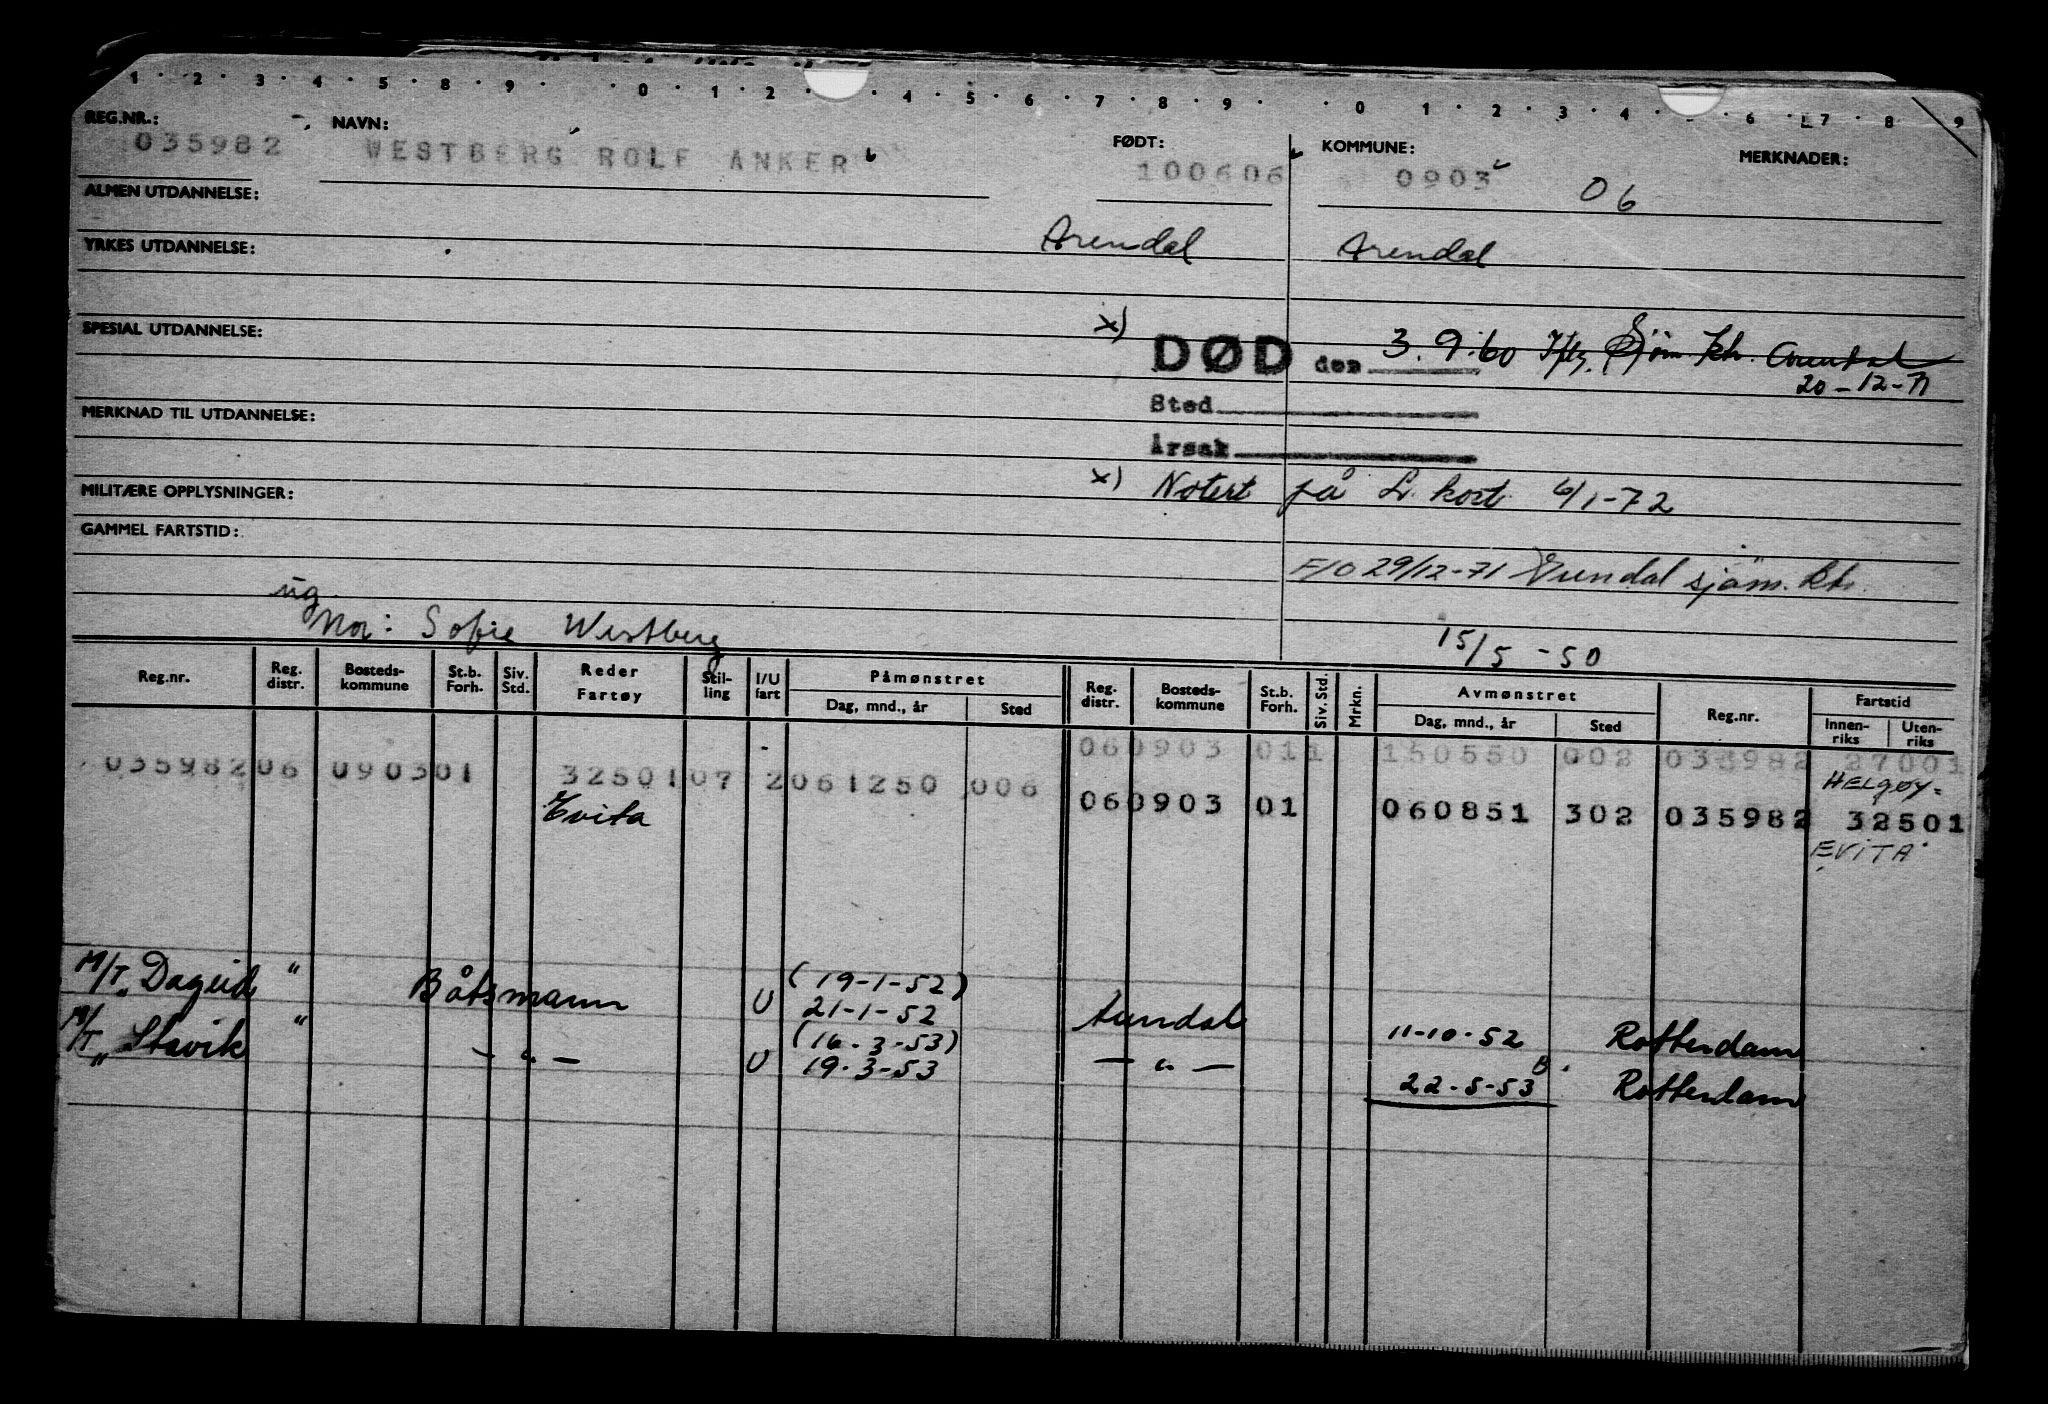 1 · 2 · 3 · 4 · 5 · 8 · 9 · · 0 · 1 · 2 · · 4 · 5 · 6 · 7 · 8 · 9 · · 0 · 1 · 2 · 3 · 4 · · 6 · 7 · 8 · 9
REG.NR.: NAVN: FØDT: KOMMUNE: MERKNADER:
035982 WESTBERG ROLF ANKER 100606 0903 06
ALMEN UTDANNELSE:
Arendal Arendal
YRKES UTDANNELSE:
SPESIAL UTDANNELSE:
x) DØD den 3.9.60 Iflg. Sjøm. ktr. Arendal
20-12-71
Sted
MERKNAD TIL UTDANNELSE:
Årsak
MILITÆRE OPPLYSNINGER:
x) Notert på L. kort 6/1-72
GAMMEL FARTSTID:
F/O 29/12-71 Arendal sjøm. ktr.
ug
Mor: Sofie Westberg
15/5-50
Reg.nr. Reg. distr. Bosteds-kommune St.b. Forh. Siv. Std. Reder Fartøy Stil-ling I/U fart Påmønstret Dag, mnd., år Sted Reg. distr. Bosteds-kommune St.b. Forh. Siv. Std. Mrkn. Avmønstret Dag, mnd., år Sted Reg.nr. Fartstid Innen-riks Uten-riks
060903 011 150550 002 035982 27001
HELGØY.
035982 06 0903 01 32501 07 2 061250 006
Evita
060903 01 060851 302 035982 32501
EVITA
M/T "Dageid" Båtsmann U (19-1-52)
21-1-52 Arendal 11-10-52 Rotterdam
M/T "Stavik" - " - U (16-3-53)
19-3-53 - " - 22-5-53 B. Rotterdam